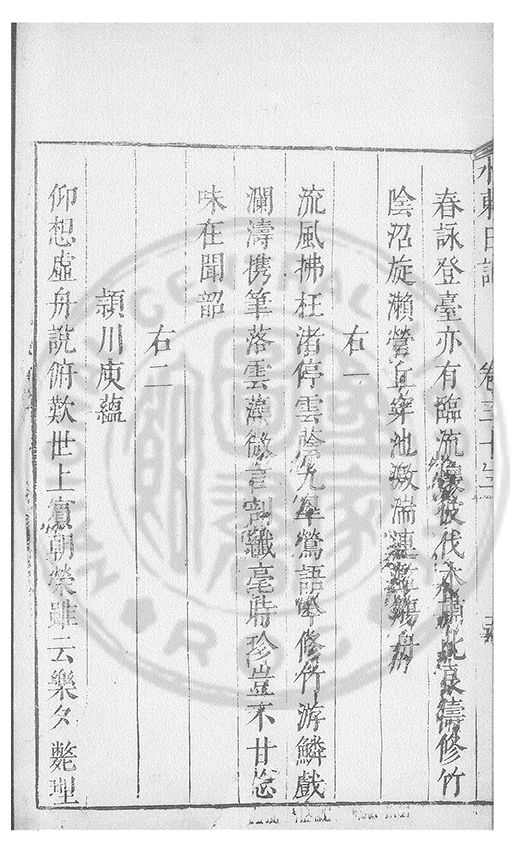 水東日記 卷三十
春詠登臺亦有臨流懷彼伐木肅此良儔修竹
陰沼旋瀨縈丘穿池激湍連濫觴舟
右一
流風拂枉渚停雲蔭九皋鶯語吟修竹游鱗戲
瀾濤携筆落雲藻微言剖纖毫時珍豈不甘忘
味在聞韶
右二
潁川庾蘊
仰想虛舟說俯歎世上賓朝榮雖云樂夕斃理